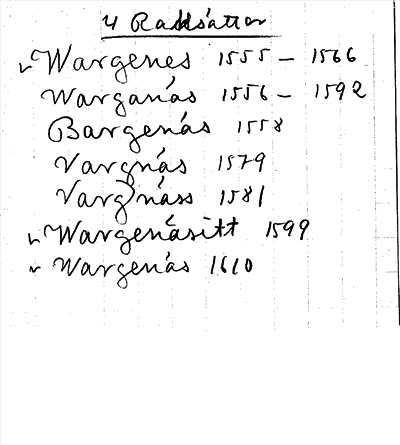 4 Raddsåtter
✓ Wargenes 1555 – 1566
Warganås 1556 – 1592
Bargenås 1558
Vargnås 1579
Vargnåss 1581
✓ Wargenåsitt 1599
✓ Wargenås 1610